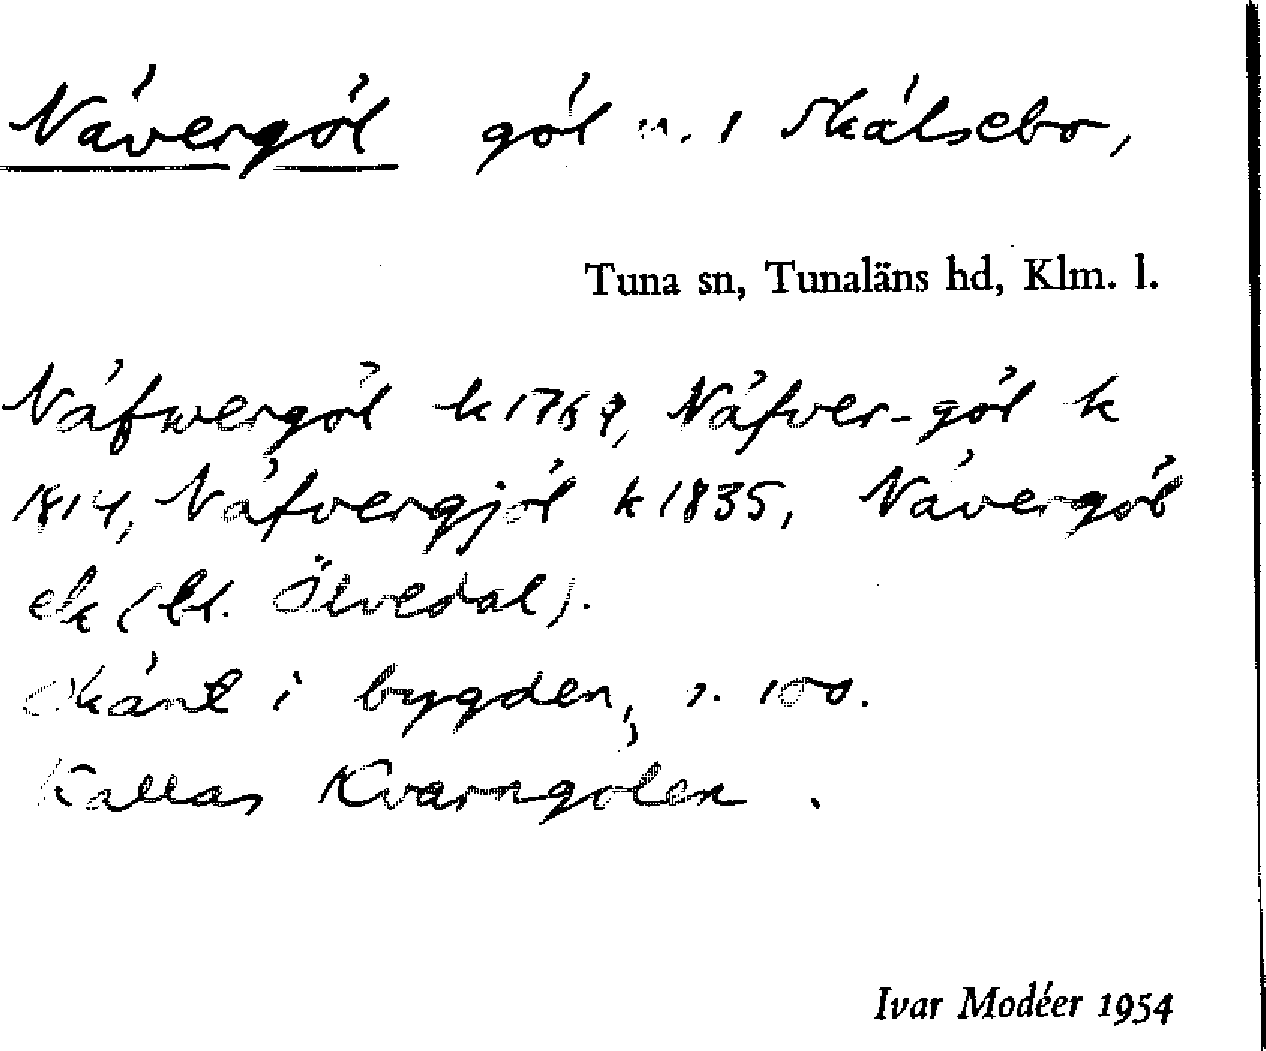 Nåvergöl göl n. i Skälsebo,
Tuna sn, Tunaläns hd, Klm. l.
Nåfwergöl k 1769, Nåfver-göl k
1814, Nåfvergjöl k 1835, Nåvergöl
ek (bl. Ölvedal).
Okänt i bygden, s. 100.
Kallas Kvarngölen.
Ivar Modéer 1954